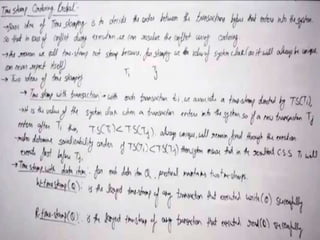 Time stamp Ordering Protocol:
→ Basic idea of Time stamping is to decide the order between the transactions before that enters into the system,
so that in case of conflict during execution we can resolve the conflict using ordering.
→ The reason we call time-stamp not stamp because for stamping we use value of system clock (as it will always be unique,
can never repeat itself)
→ Two ideas of time stamping Ti j
→ Time stamp with transaction → with each transaction ti, we associate a time stamp denoted by TS(Ti),
→ it is the value of the system clock when a transaction enters into the system so if a new transaction Tj
enters after Ti then, TS(Ti) < TS(Tj) always unique, will remain fixed through the execution
→ also determine serializability order if TS(Ti) < TS(Tj) then system ensure that in the resultant C.S.S Ti will
execute first before Tj.
→ Time-stamp with data item: for each data item Q, protocol maintains two time-stamps.
W-timestamp(Q): is the largest time-stamp of any transaction that executed write(Q) successfully
R-timestamp(Q): is the largest time stamp of any transaction that executed read(Q) successfully